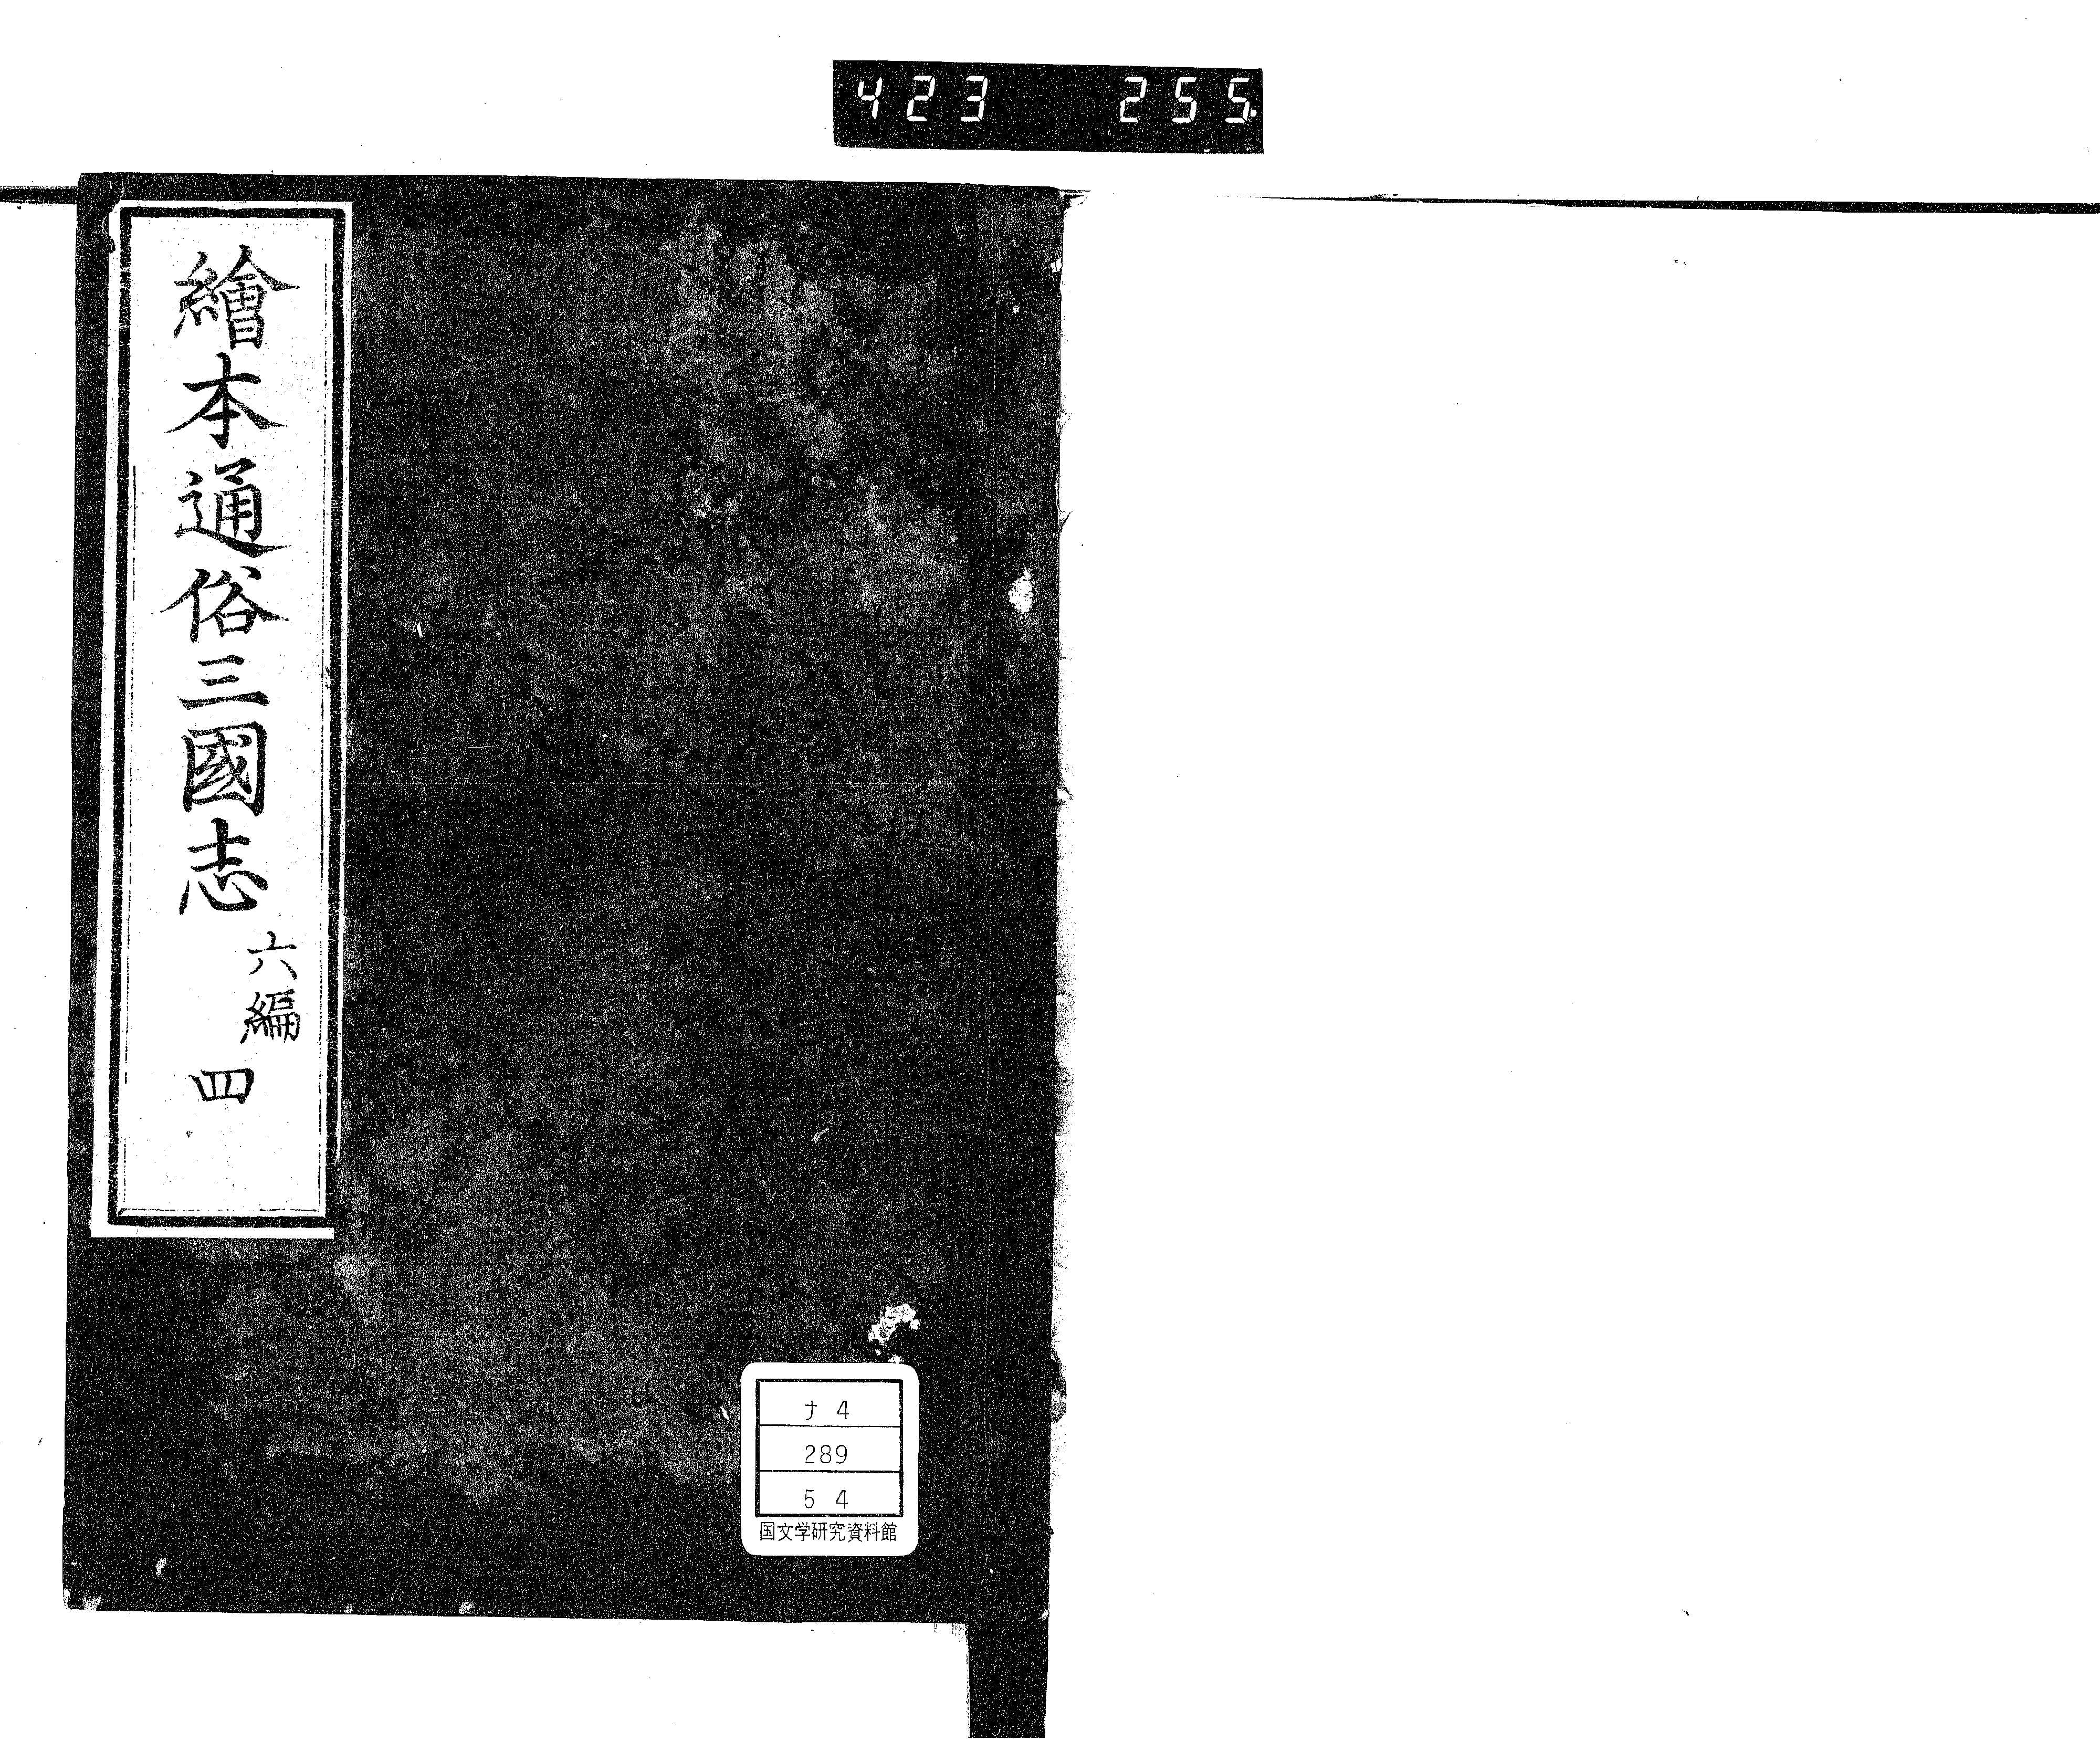 423 255.
繪本通俗三國志
六編
四
ナ 4
289
5 4
国文学研究資料館